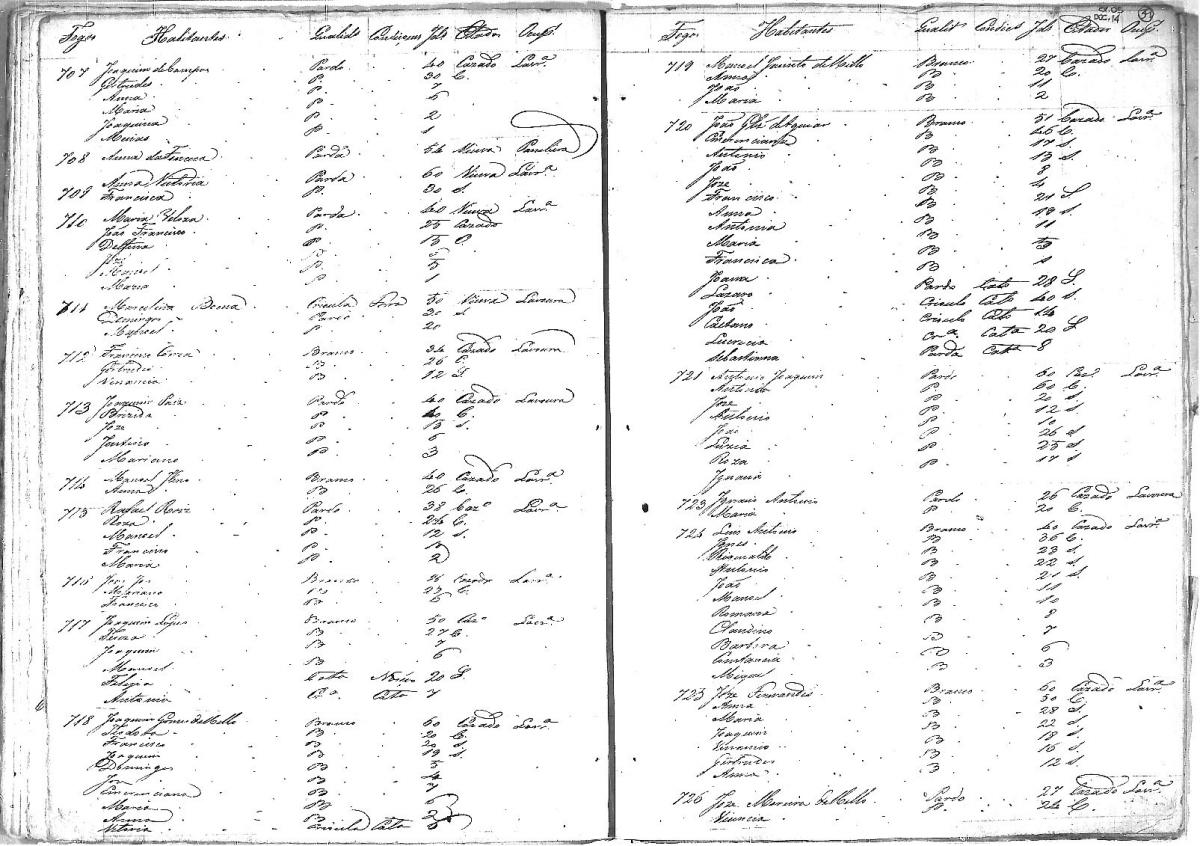 Fogos Habitantes Qualid. Condiçam Ids Estados Ocup.
707 Joaquim de Campos Pardo 40 Cazado Lavra.
Getrudes P 30 C.
Anna P 7
Maria P 5
Joaquina P 2
P 1
708 Anna da Fonceca Parda 54 Viuva Paneleira
709 Anna Parda 60 Viuva Lavra.
Francisca P. 20 S.
710 Maria Parda 40 Viuva Lavra.
João Francisco P. 25 Cazado
Delfina P 15 C
Joze P
Manoel P 3
Maria P 1
711 Marcelina Crioula Forra 50 Viuva Lavoura
Domingos Pardo 20 S
Manoel P 20
712 Francisco Correa Branco 34 Cazado Lavoura
Gertrudes B. 26 C.
Venancia B 12 S.
713 Joaquim Pardo 40 Cazado Lavoura
Brizida P 40 C.
Joze P 13 S
P 6
Mariano P 3
714 Manoel Branco 40 Cazado Lavra.
Anna B 26 C.
715 Rafael Pardo 38 Cazo. Lavra.
Roza P. 24 C.
Manoel P. 12 S.
Francisco P.
Maria P. 2
716 Branco 26 Cazado Lavra.
Mariana 23 C.
Francisco B
717 Joaquim Lopes Branco 50 Cazo. Lavra.
B 27 C.
Joaquim B 7
Manoel B 6
Felizia 20 S.
Antonio Co. Cato 7
718 Joaquim Gomes de Mello Branco 60 Cazado Lavra.
B 20 C.
Francisco B 20 S
Joaquim B 19 S.
Domingos B 5
Joze B 4
Emerenciana B 7
Maria B 6
Anna B 2
Crioula Cato
CX.06
DOC.14
Fogos Habitantes Qualid Condict Ids Estados Ocup.
719 Manoel Jacinto de Mello Branco 27 Cazado Lavra.
Anna B 20 C.
João B 11
Maria B 2
720 João Glz d'Aguiar Branco 51 Cazado Lavra.
Emerenciana B 46 C.
Antonio B 17 S.
João B 13 S.
Joze B 8
Francisco B 4
Anna B 21 S
Antonia B 18 S.
Maria B 11
Francisca B
Joana B 1
Lazaro Pardo Cato 28 S.
João Crioulo Cato 40 S.
Caetano Crioulo Cato 14
Lucrecia Cra. Cata 20 S
Sebastianna Parda Cata 8
721 Antonio Joaquim Pardo 60 Cazo. Lavra.
P 60 C.
Joze P. 20 S
Antonio P 12 S
João P. 10
Luzia P 26 S
Roza P 25 S
Ignacia P. 17 S
723 Ignacio Antonio Pardo 26 Cazado Lavoura
Maria P 20 C.
724 Luis Antonio Branco 40 Cazado Lavra.
Ignes B 36 C.
B 23 S.
Antonio B 22 S.
João B 21 S.
Manoel B 11
Romana B 10
Claudino B 8
Barbara B 7
Constancia B 6
Miguel B 3
725 Joze Fernandes Branco 60 Cazado Lavra.
Anna B 50 C.
Maria B 28 S.
Joaquim B 22 S.
Venancio B 18 S
Gertrudes B 16 S
Anna B 12 S
726 Joze Moreira de Mello Pardo 27 Cazado Lavra.
Vicencia P. 24 C.